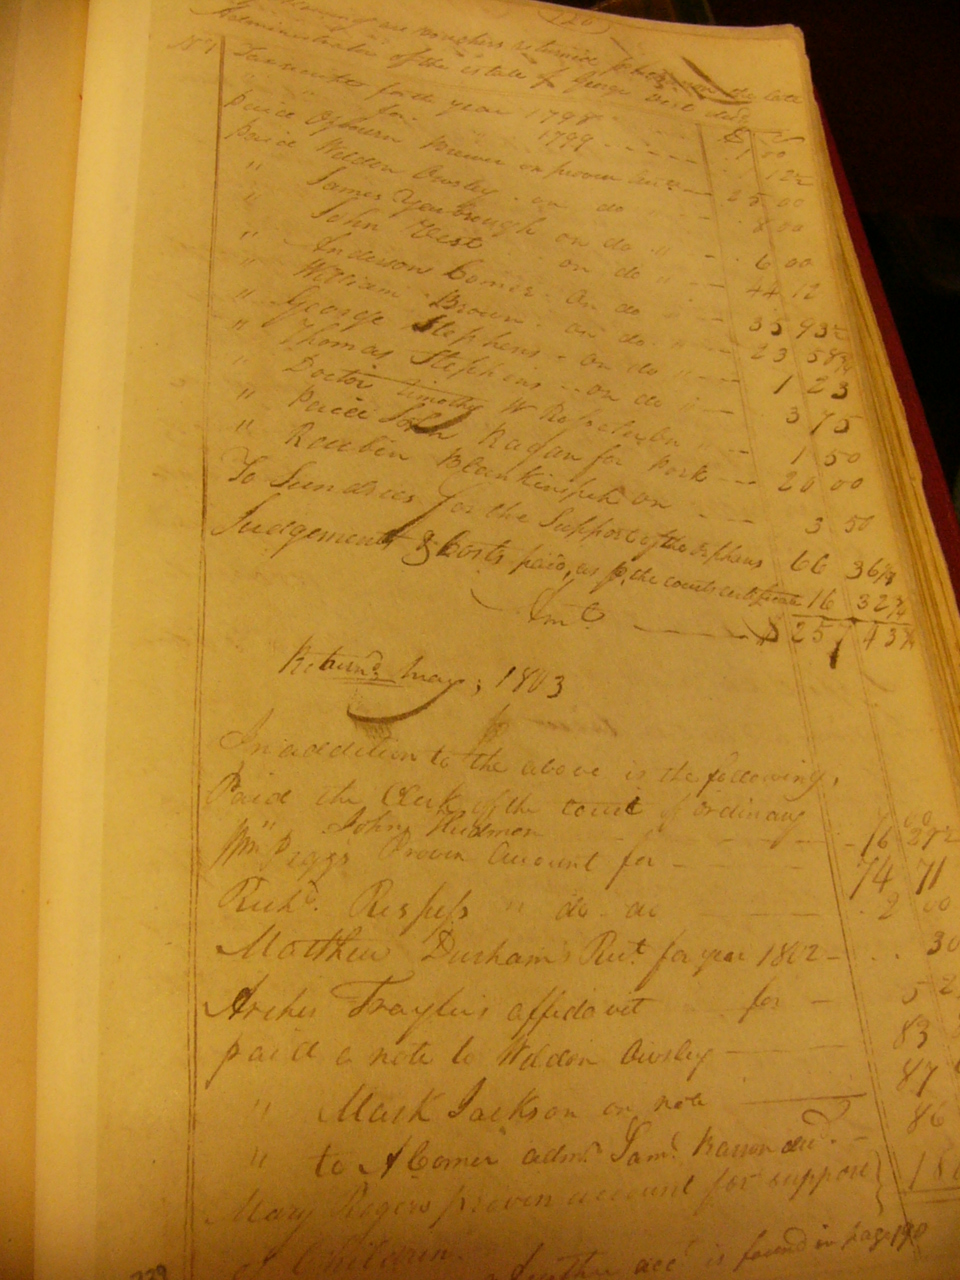 following are vouchers returned by the late
Administrator of the estate of George West decd
No 1 Tax receites for the year 1798 1 00
" for 1799 1 22
paid Osburn Brewer on proven acct 25 00
paid Weldon Owsley on do " 8 00
" James Yearbrough on do " 6 00
" John West on do " 44 12
" Anderson Comer on do " 35 93½
" William Brown on do " 23 58¾
" George Stephens on do " 1 23
" Thomas Stephens on do " 3 75
" Doctor Timothy W 1 50
" Paid John Ragan for Pork 20 00
" Reubin Blankinship on 3 50
To Sundries for the Support of the orphans 66 36
Judgement & Costs paid, as p. the courts certificate 16 32
Amt $ 257 43
Returnd May; 1803
In addition to the above is the following,
Paid the Clerk of the court of ordinary
" John Hudmon 16
Wm Peggs Proven Account for 74 71
Richd. Respess " do do 2 00
Matthew Durham's Rect. for year 1802 30
Archer Traylers affidavit for 5 2
paid a note to Weldon Owsley 83
" Mark Jackson on note 87
" to A Comer admr. Saml. decd. 86
Mary Rogers proven account for suppore
of Children 18
further acc is found in page 190
229